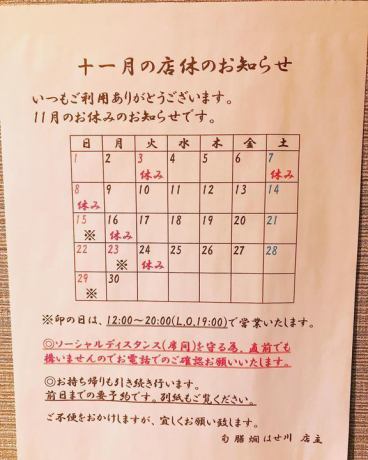 十一月の店休のお知らせ
いつもご利用ありがとうございます。
11月のお休みのお知らせです。
日 月 火 水 木 金 土
1 2 3 4 5 6 7
休み 休み
8 9 10 11 12 13 14
休み
15 16 17 18 19 20 21
※ 休み
22 23 24 25 26 27 28
※ 休み
29 30
※
※印の日は、12:00~20:00(L,O,19:00)で営業いたします。
◎ソーシャルディスタンス(席間)を守る為、直前でも
構いませんのでお電話でのご確認お願いいたします。
◎お持ち帰りも引き続き行います。
前日までの要予約です。別紙もご覧ください。
ご不便をおかけしますが、宜しくお願い致します。
旬膳燗 はせ川 店主